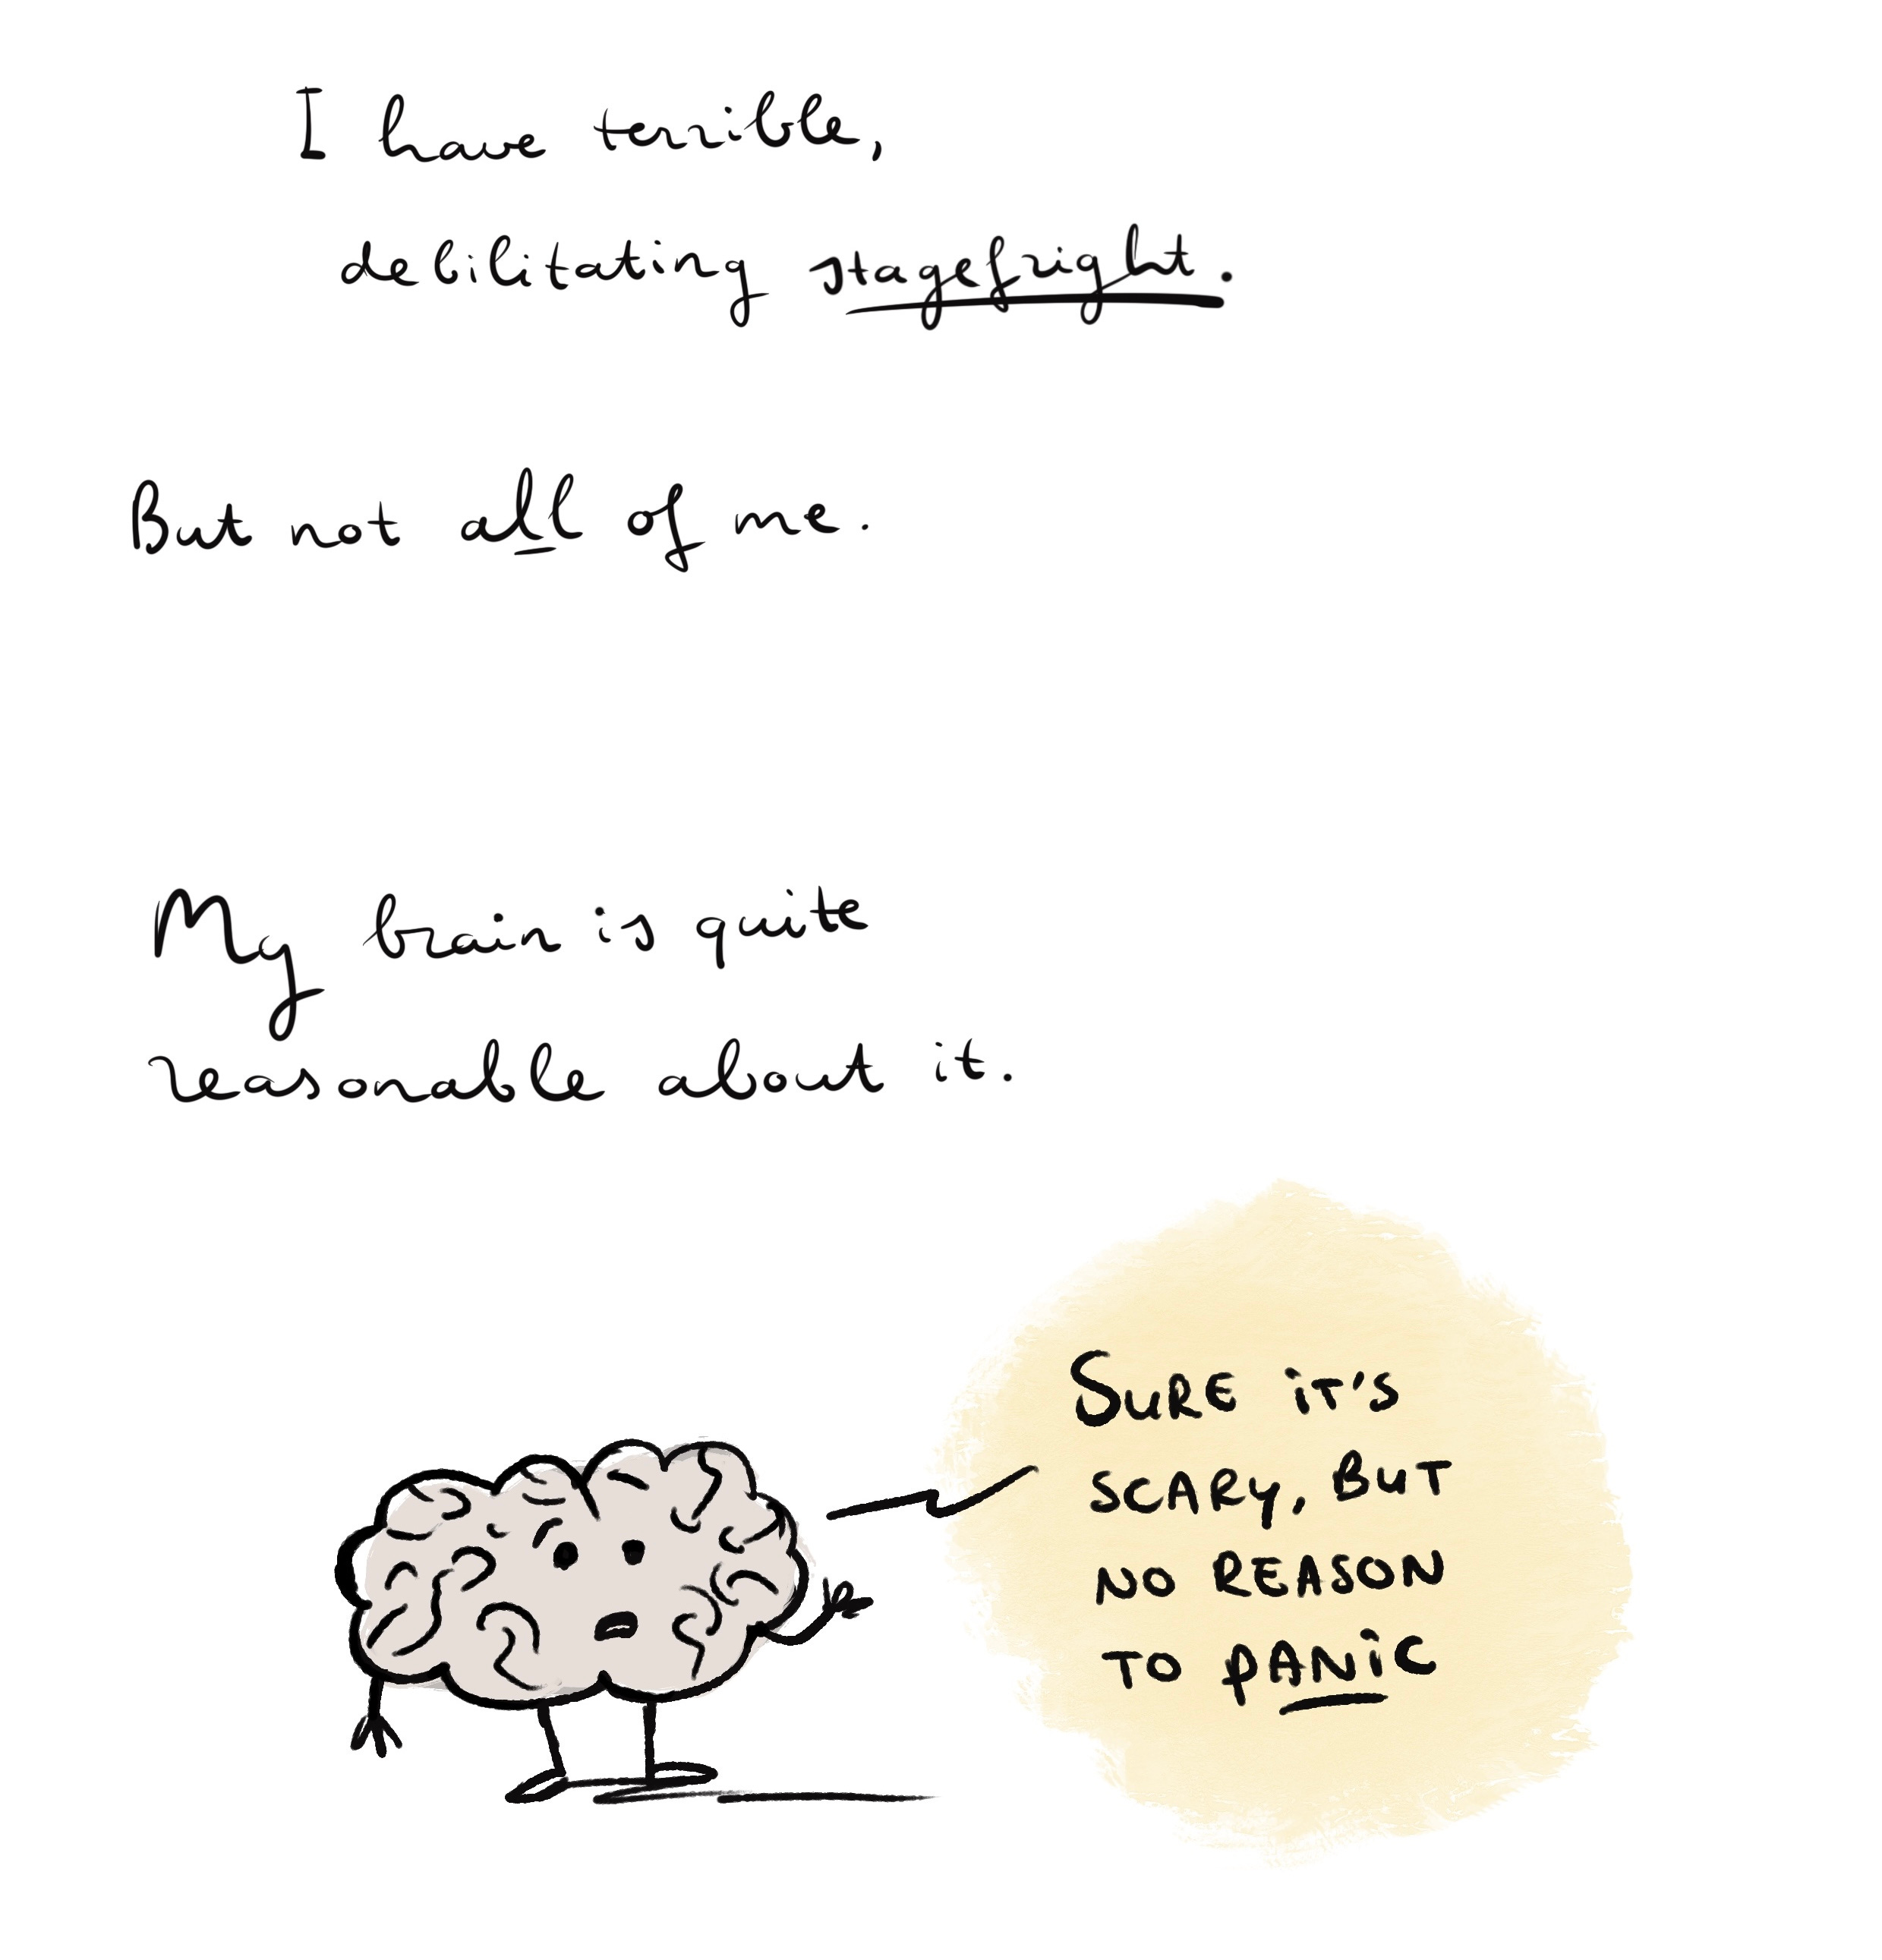 I have terrible,
debilitating stagefright.
But not all of me.
My brain is quite
reasonable about it.
SURE iT'S
SCARY, BUT
NO REASON
TO PANiC